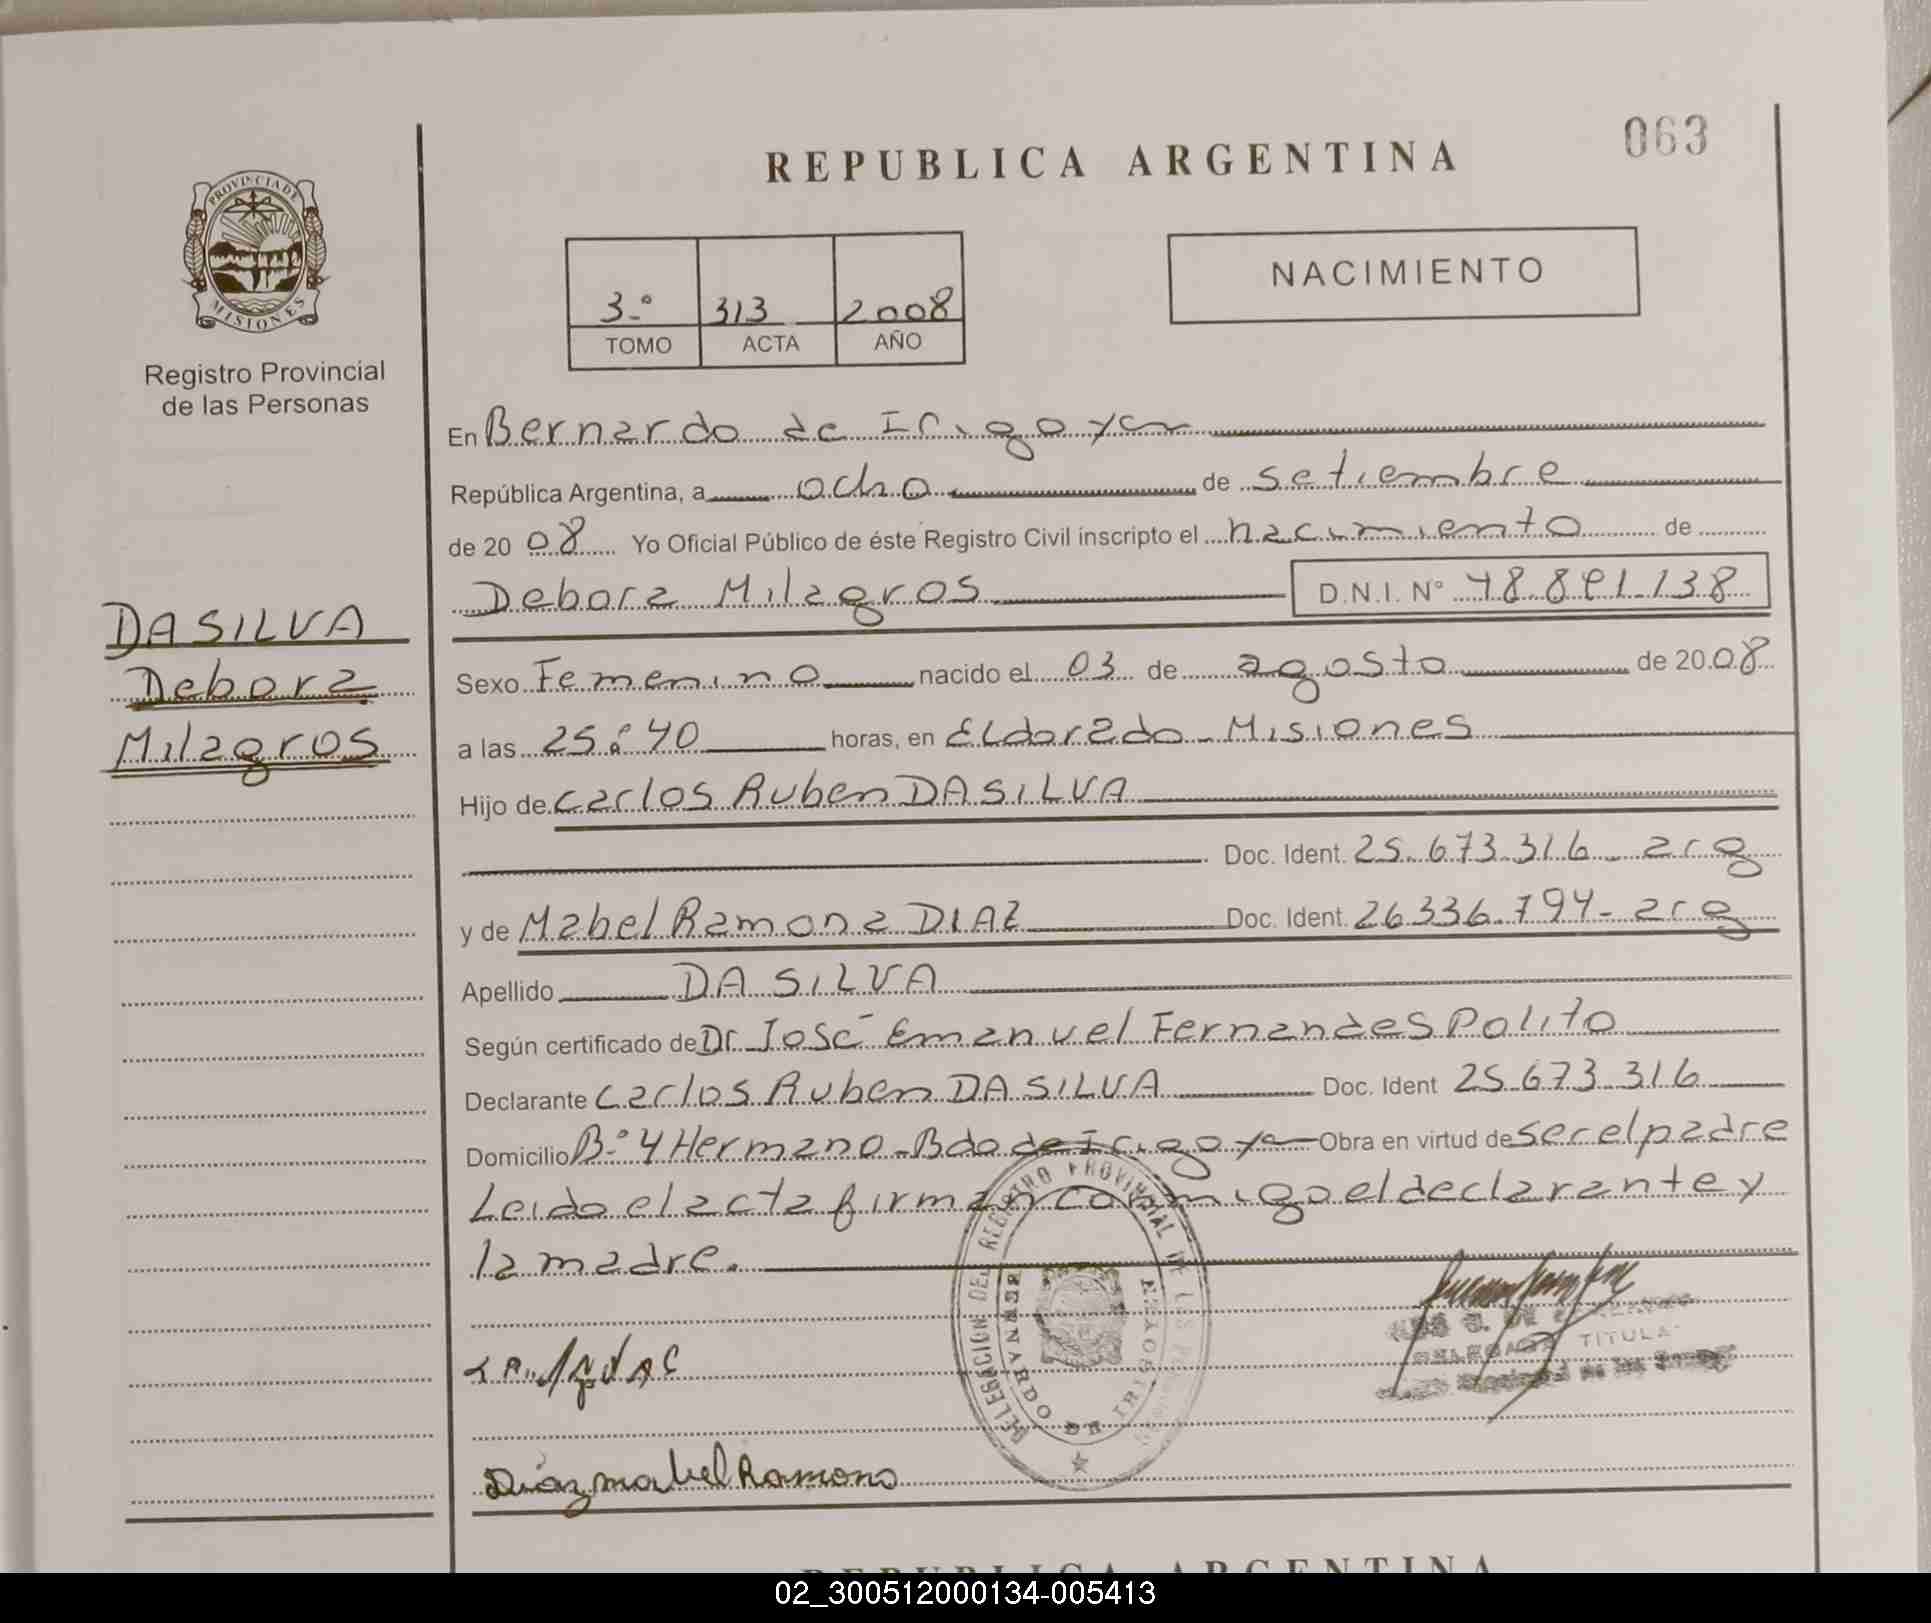 063
REPUBLICA ARGENTINA
PROVINCIA DE
MISIONES
Registro Provincial
de las Personas
3º 313 2008
TOMO ACTA AÑO
NACIMIENTO
En Bernardo de Irigoyen
República Argentina, a ocho de setiembre
de 2008 Yo Oficial Público de éste Registro Civil inscripto el nacimiento de
Debora Milagros D.N.I. Nº 48.891.138
DA SILVA
Debora
Milagros
Sexo Femenino nacido el 03 de agosto de 2008
a las 25:40 horas, en Eldorado - Misiones
Hijo de Carlos Ruben DA SILVA
Doc. Ident. 25.673.316 - arg
y de Mabel Ramona DIAZ Doc. Ident. 26.336.794 - arg
Apellido DA SILVA
Según certificado de Dr José Emanuel Fernandes Polito
Declarante Carlos Ruben DA SILVA Doc. Ident 25.673.316
Domicilio Bº 4 Hermano - Bdo de Irigoyen Obra en virtud de ser el padre
Leido el acta firman conmigo el declarante y
la madre.
DELEGACION DEL REGISTRO PROVINCIAL DE LAS
BERNARDO DE IRIGOYEN
TITULAR
Diaz mabel Ramona
REPUBLICA ARGENTINA
02_300512000134-005413